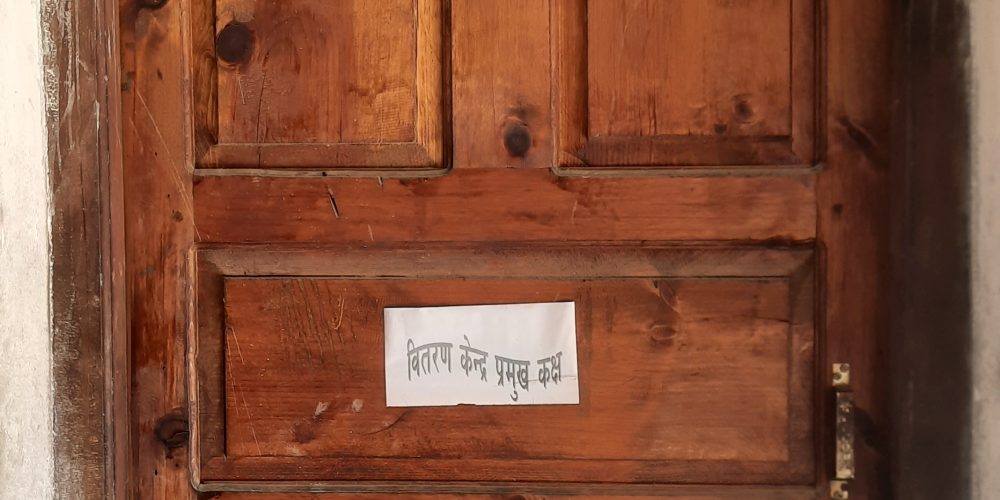 वितरण केन्द्र प्रमुख कक्ष